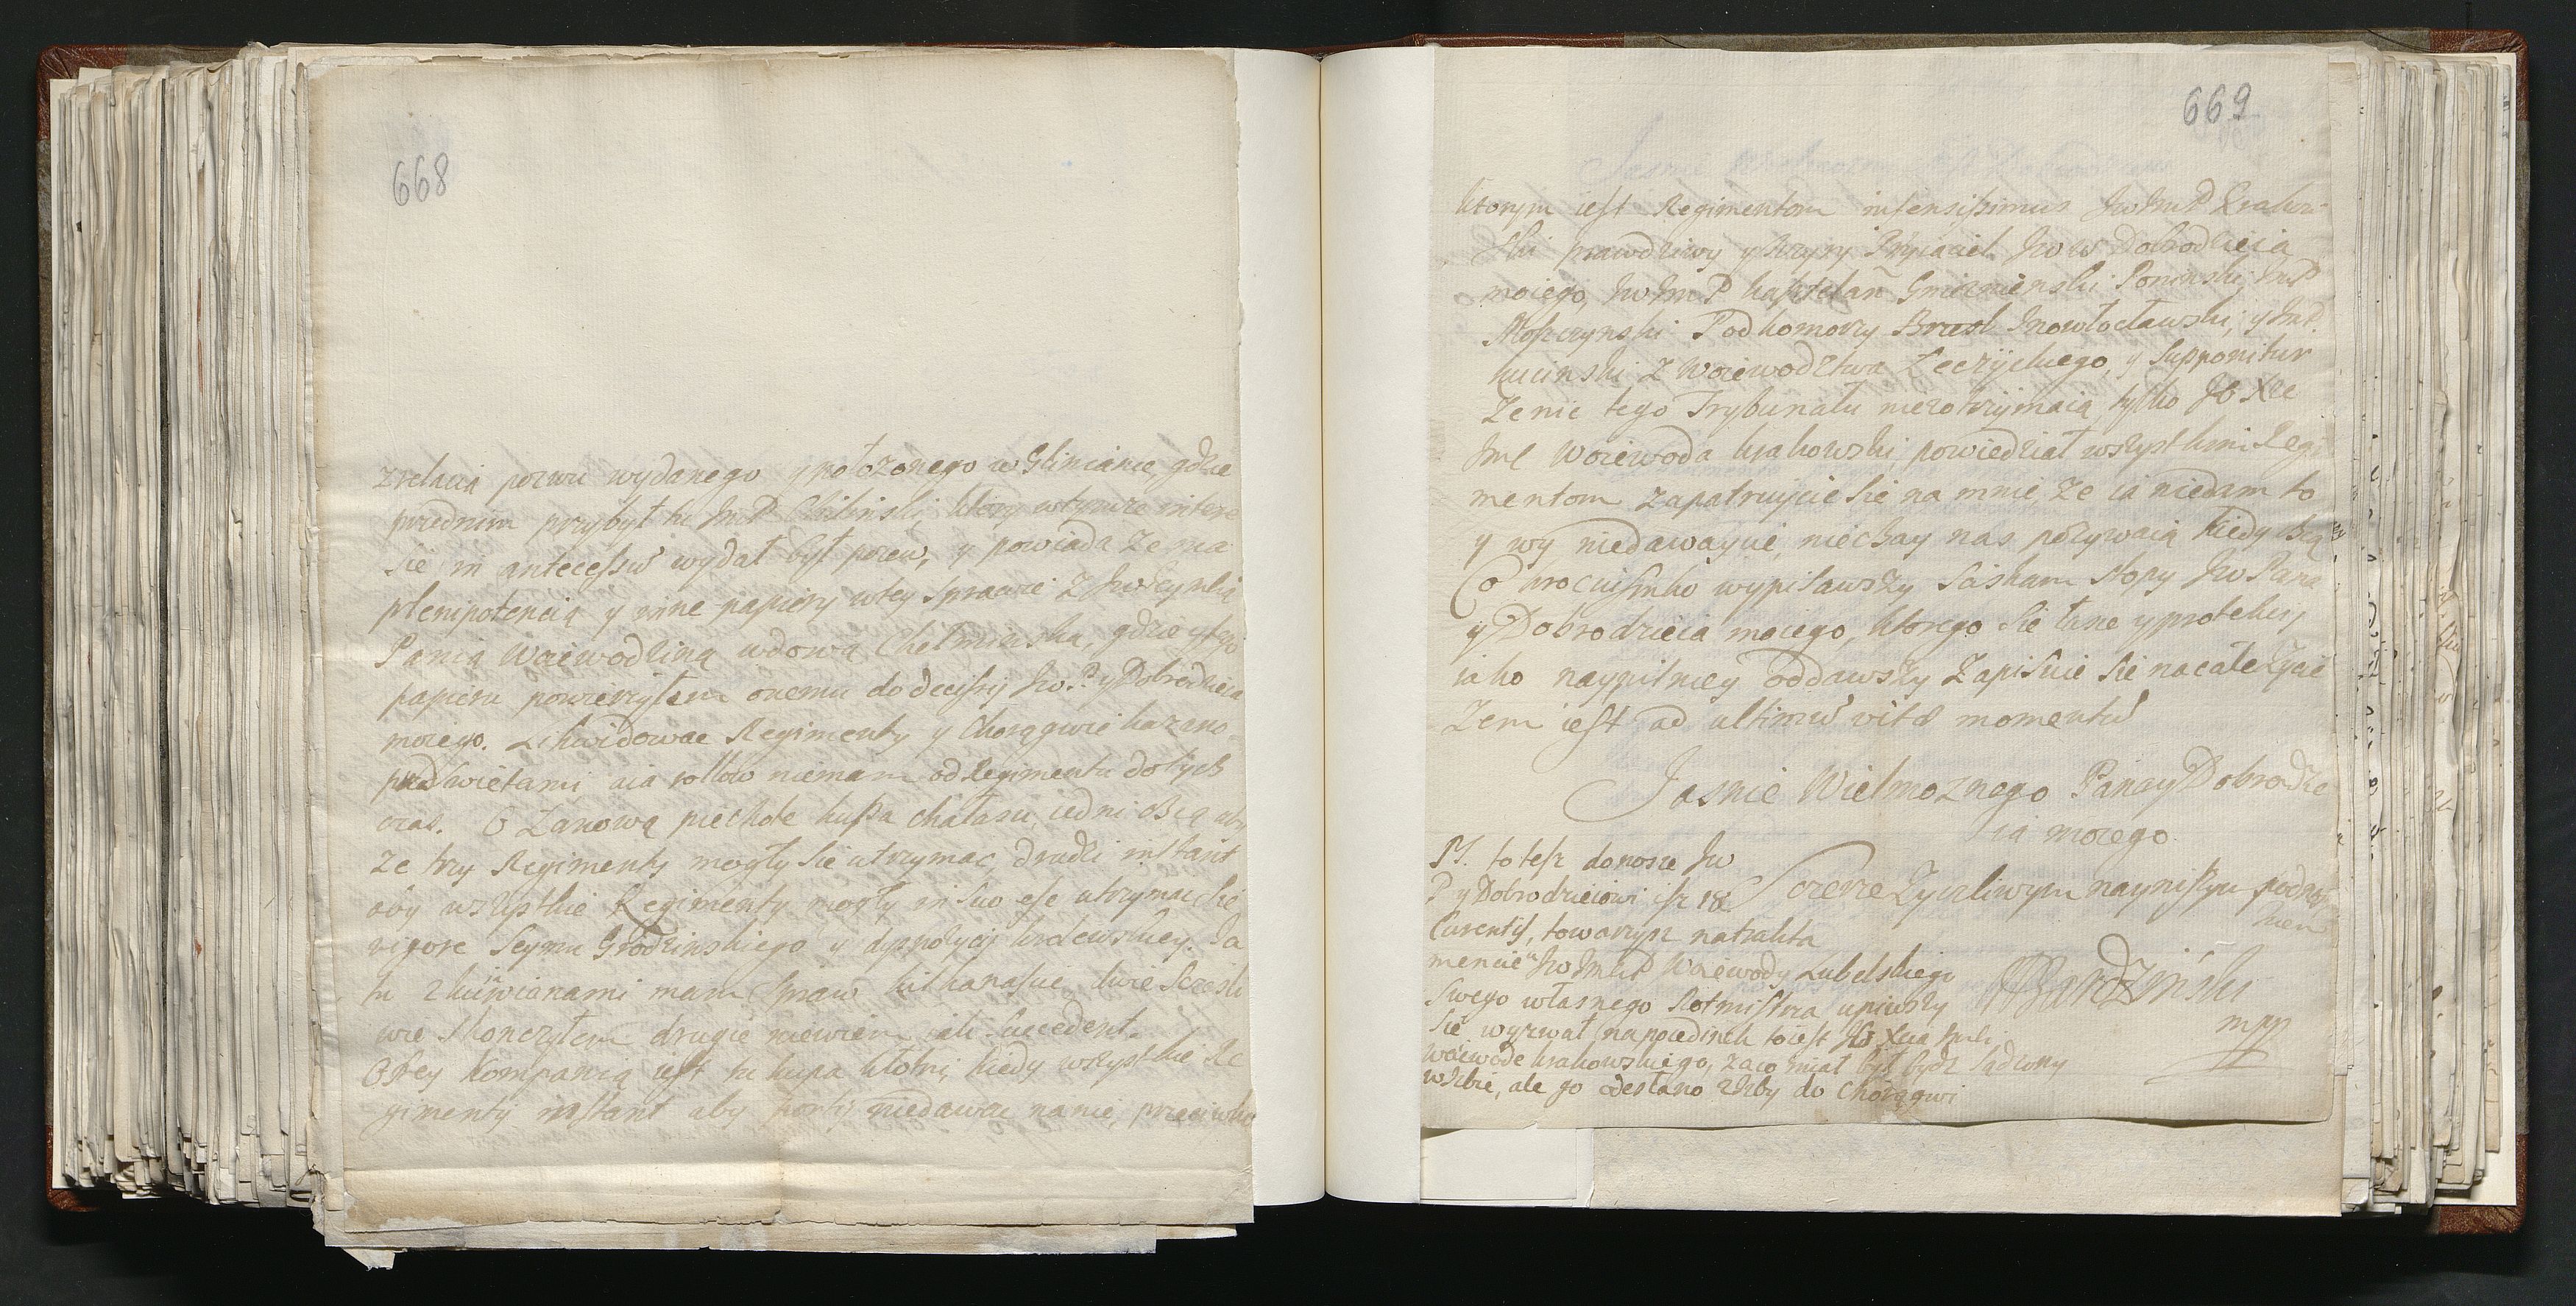 668
zrelacią pozwu wydanego y położonego w Glinianie, gdzie
przednim przybył tu ImP Chilinski, ktory wtymże intere
sie in antecessū wydał był pozew, y powiada ze ma
plenipotencią y inne papiery wtey sprawie z
Panią Woiewodziną wdową Chełminską, gdzie y tego
papieru powierzyłem onemu do decisij Jw.P. y Dobrodzieia
moiego. Likwidowac Regimenty y Chorągwie kazano
przed swiętami aia rollow niemam od Regimentu dotych
czas. O Zanową piechotę kupa chałasu, iedni chcą aby
ze trzy Regimenty mogły się utrzymac, drudzi instant
aby wszystkie Regimenty mogły in suo esse utrzymac się
vigore Seymu Grodzinskiego y dyspozycij krolewskiey. Ja
tu zkuiawianami mam spraw kilkanascie, dwie sczesli
wie skonczyłem drugie niewiem iak succedent.
Obtey Kompanią iest tu kupa kłotni, kiedy wszystkie Re
gimenty instant aby porty niedawac na nie, przeciwko
669
ktorym iest Regimentom infensissimus JwImP Krakow
ski prawdziwy y sczyry Pryiaciel Jw W Dobrodzieia
moiego, JwImP kasztelan Gniznienski Poninski, ImP
Moszczynski Podkomorzy Brzesk Inowłocławski, y ImP.
kucinski z Woiewodztwa Łęczyckiego, y supponitur
ze nic tego Trybunału niezotrzymaią, tylko JO Xże
Iml Woiewoda krakowski, powiedział wszystkimi Regi
mentom zapatruycie się na mnie, ze ia niedam to
y wy niedawaycie, niechay nas pozywaią kiedy chcą
Co krociusinko wypisawszy sciskam stopy Jw Pana
y Dobrodzieia moiego, ktorego się łasce y protekcij
iako naypilniey oddawszy zapisuie się nacałe życie
Zem iest ad ultimū vitæ momentū
Jasnie Wielmoznego Pana y Dobrodzie
ia moiego.
Sczerze Zyczliwym naynizszym podno
kiem
Bardzinski
mpp
PS. to tesz donosze Jw
P y Dobrodzieiowi isz 18
Curentis, towarzysz natrakta
mencie JwImP Woiewody Lubelskiego
swego własnego Rotmistrza upiwszy
się wyzwał na poiedinek toiest JO Xcia Imci
woiewode krakowskiego, zaco miał był bydz sądzony
wizbie, ale go odesłano zIzby do Chorągwi